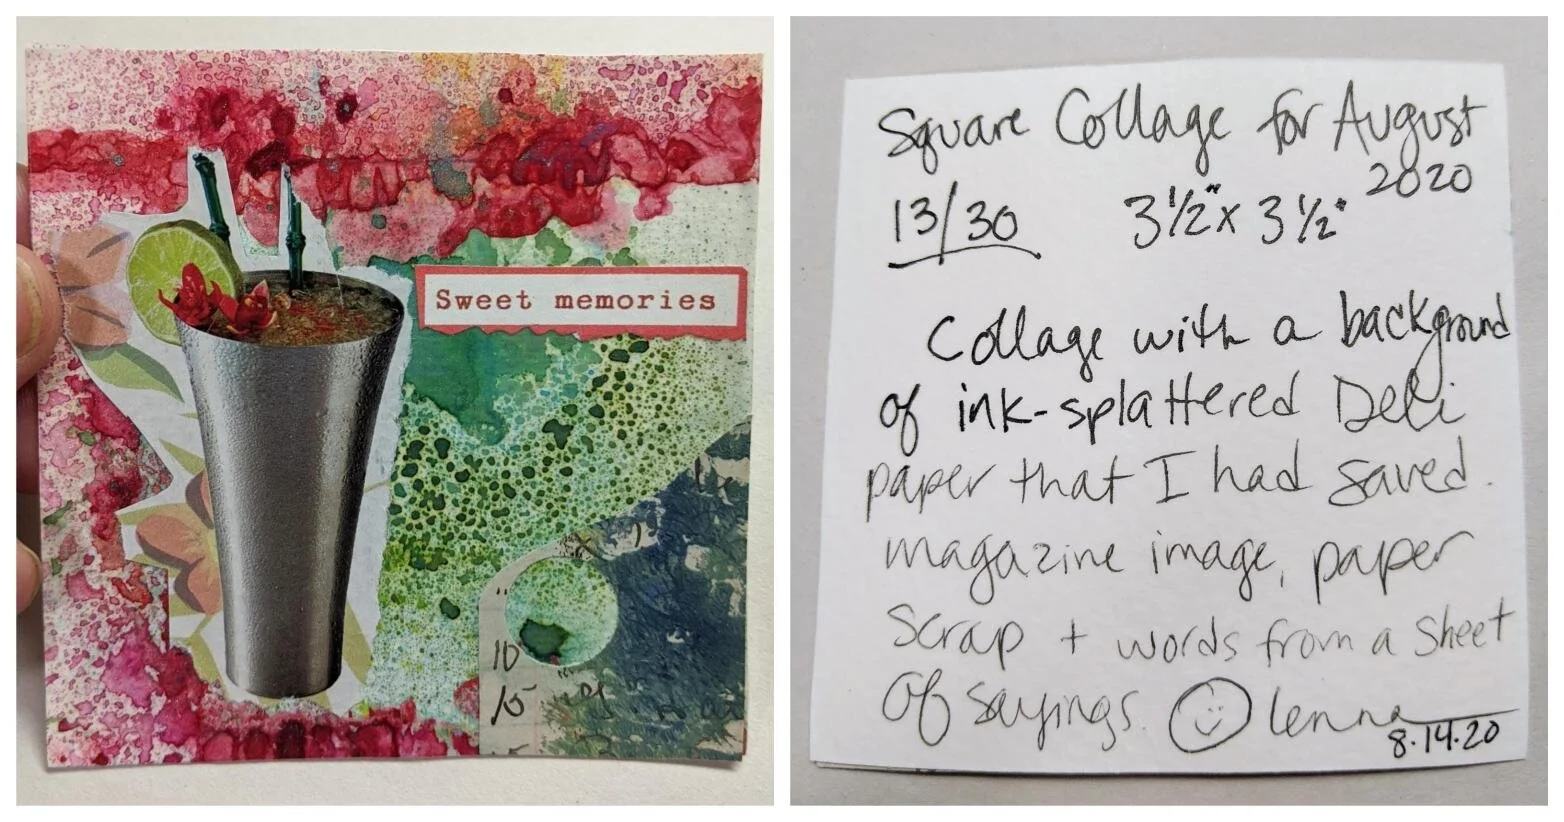 Sweet memories
"
10
15
Square Collage for August
2020
13/30 3 1/2" x 3 1/2"
Collage with a background
of ink-splattered Deli
paper that I had saved.
magazine image, paper
scrap + words from a sheet
of sayings. lenna
8.14.20